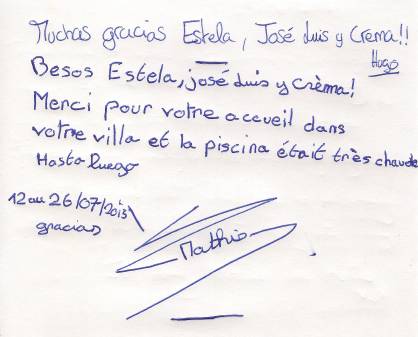 Muchas gracias Estela, José Luis y Crema!!
Hugo
Besos Estela, josé Luis y Crèma!
Merci pour votre accueil dans
votre villa et la piscina était très chaude
Hasta luego
12 au 26/07/2013
gracias
Mathis